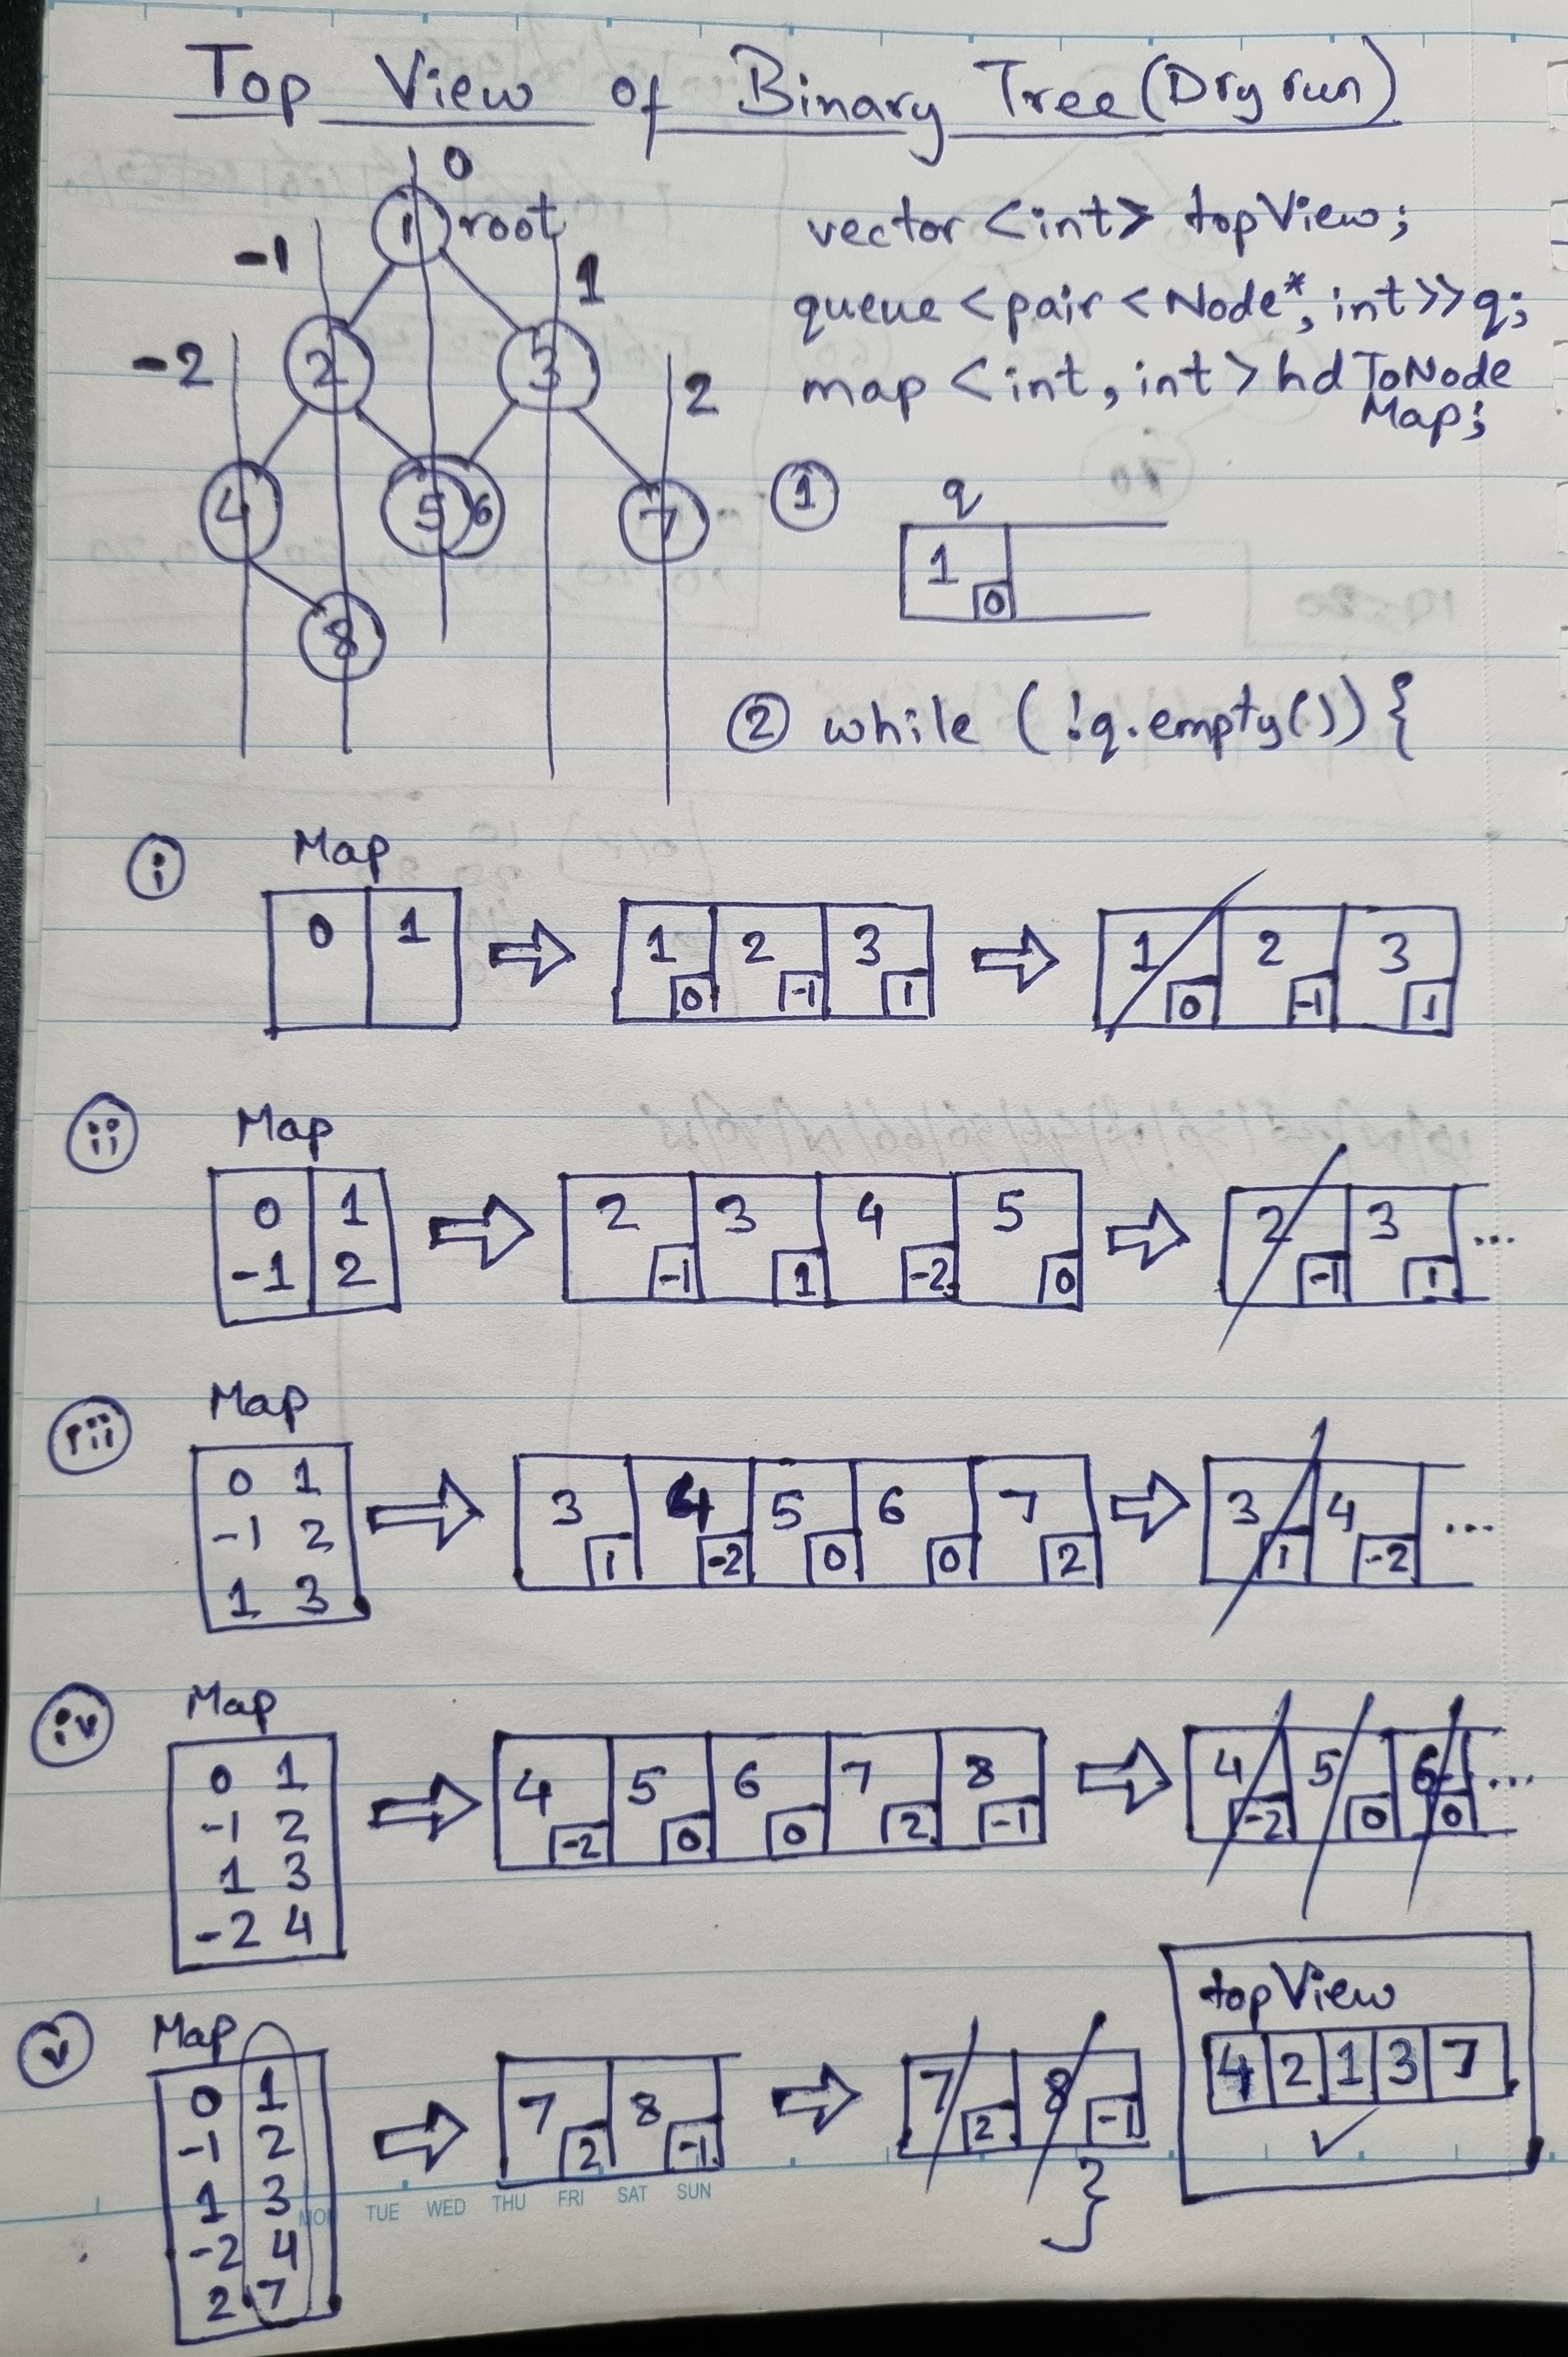 Top View of Binary Tree (Dry run)
0
1 root
-1
1
2 3
-2
2
4 5 6 7
8
vector <int> topView;
queue <pair <Node*, int>> q;
map <int, int> hdToNode
Map;
① q
1 0
② while (!q.empty()) {
i Map
0 1
1 0 2 -1 3 1
1 0 2 -1 3 1
ii Map
0 1
-1 2
2 -1 3 1 4 -2 5 0
2 -1 3 1 ...
iii Map
0 1
-1 2
1 3
3 1 4 -2 5 0 6 0 7 2
3 1 4 -2 ...
iv Map
0 1
-1 2
1 3
-2 4
4 -2 5 0 6 0 7 2 8 -1
4 -2 5 0 6 0 ...
v Map
0 1
-1 2
1 3
-2 4
2 7
7 2 8 -1
7 2 8 -1
}
topView
4 2 1 3 7
✓
MON TUE WED THU FRI SAT SUN